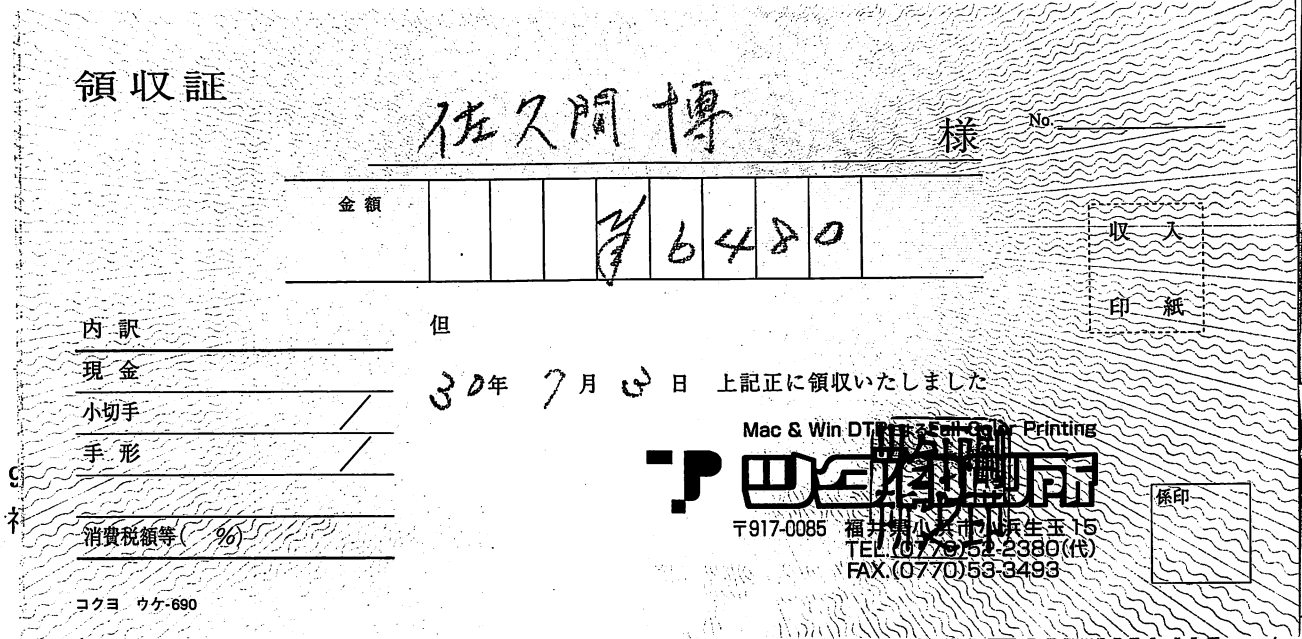 領収証
佐久間 博 様
No.
金額 ¥6480
収入
印紙
但
内訳
現金
小切手
手形
30年 7月 3日 上記正に領収いたしました
Mac & Win DTP Full Color Printing
〒917-0085 福井県小浜市小浜生玉15
TEL.(0770)52-2380(代)
FAX.(0770)53-3493
係印
消費税額等( %)
コクヨ ウケ-690